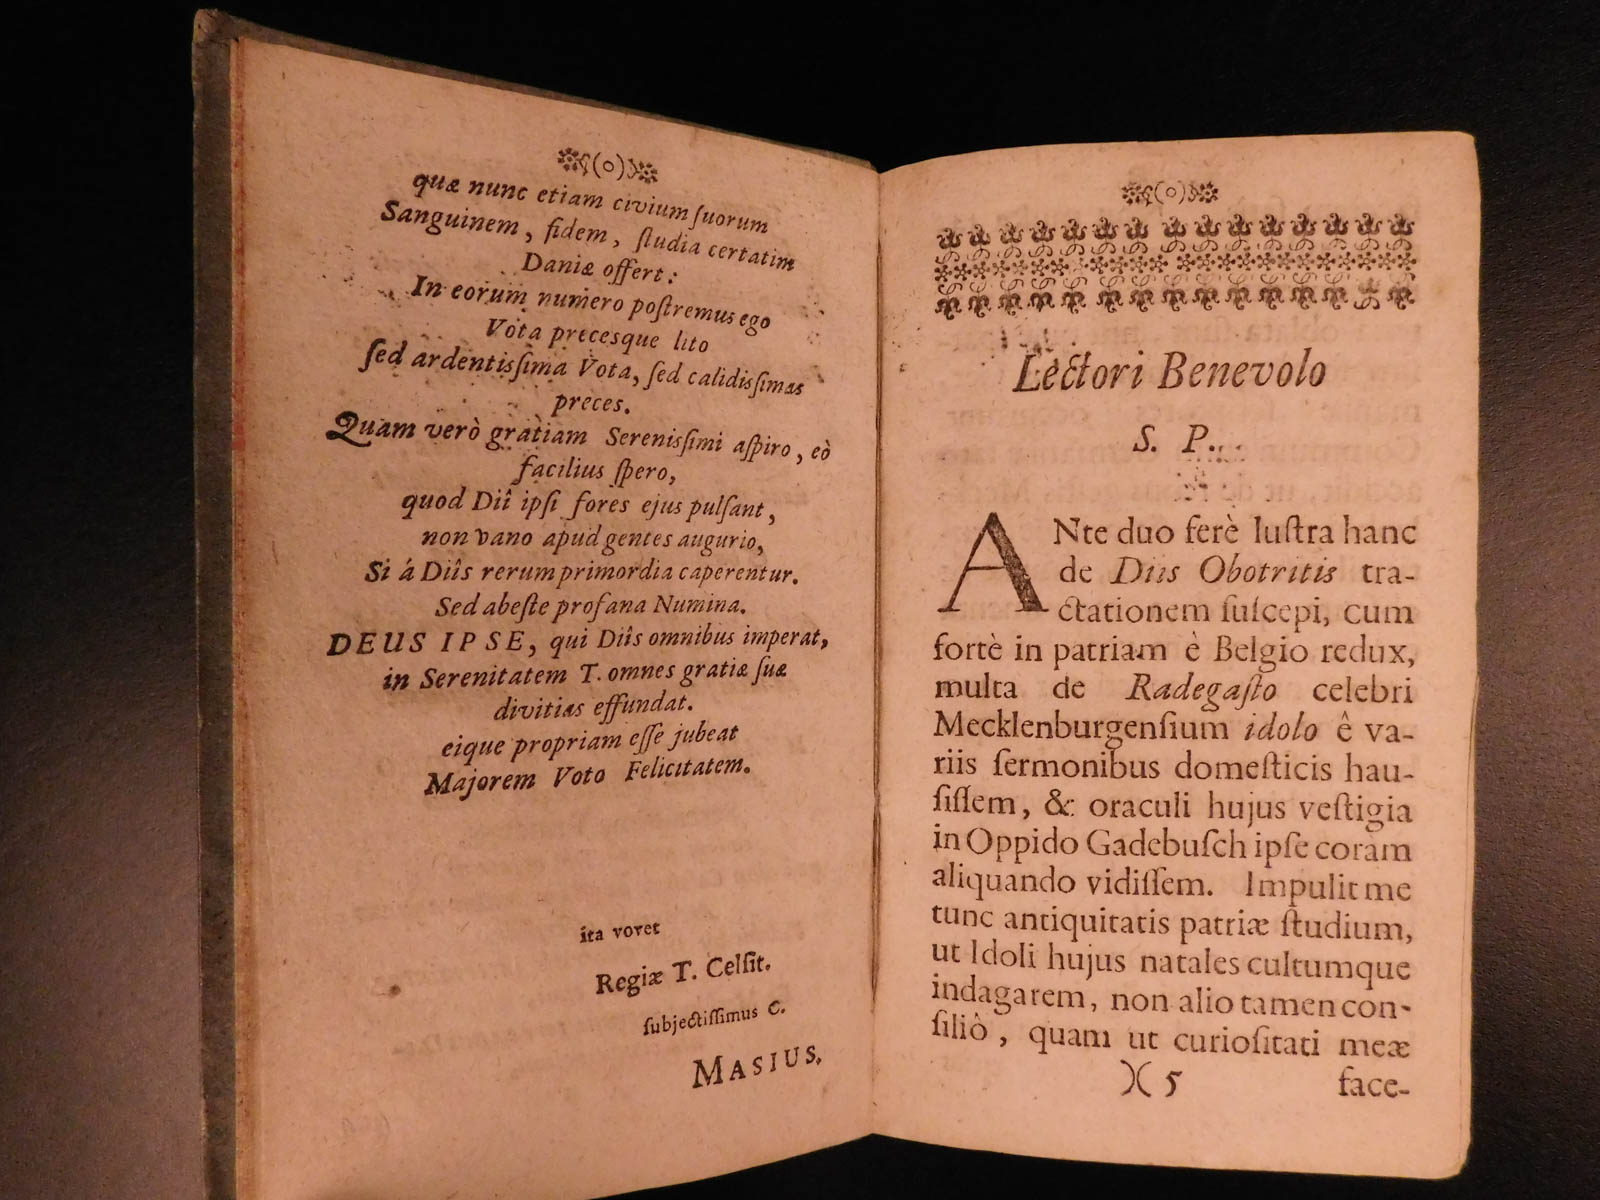 quæ nunc etiam civium ſuorum
Sanguinem, fidem, ſtudia certatim
Daniæ offert:
In eorum numero poſtremus ego
Vota precesque lito
ſed ardentiſſima Vota, ſed calidiſſimas
preces.
Quam verò gratiam Sereniſſimi aſpiro, eò
facilius ſpero,
quod Dii ipſi fores ejus pulſant,
non vano apud gentes augurio,
Si á Diîs rerum primordia caperentur.
Sed abeſte profana Numina.
DEUS IPSE, qui Diîs omnibus imperat,
in Serenitatem T. omnes gratiæ ſuæ
divitias effundat.
eique propriam eſſe jubeat
Majorem Voto Felicitatem.
ita vovet
Regiæ T. Celſit.
ſubjectiſſimus C.
MASIUS,
Lectori Benevolo
S. P.
ANte duo ferè luſtra hanc
de Diis Obotritis tra-
ctationem ſuſcepi, cum
fortè in patriam è Belgio redux,
multa de Radegaſto celebri
Mecklenburgenſium idolo ê va-
riis ſermonibus domeſticis hau-
ſiſſem, & oraculi hujus veſtigia
in Oppido Gadebuſch ipſe coràm
aliquando vidiſſem. Impulit me
tunc antiquitatis patriæ ſtudium,
ut Idoli hujus natales cultumque
indagarem, non alio tamen con-
ſiliò, quam ut curioſitati meæ
)( 5 face-